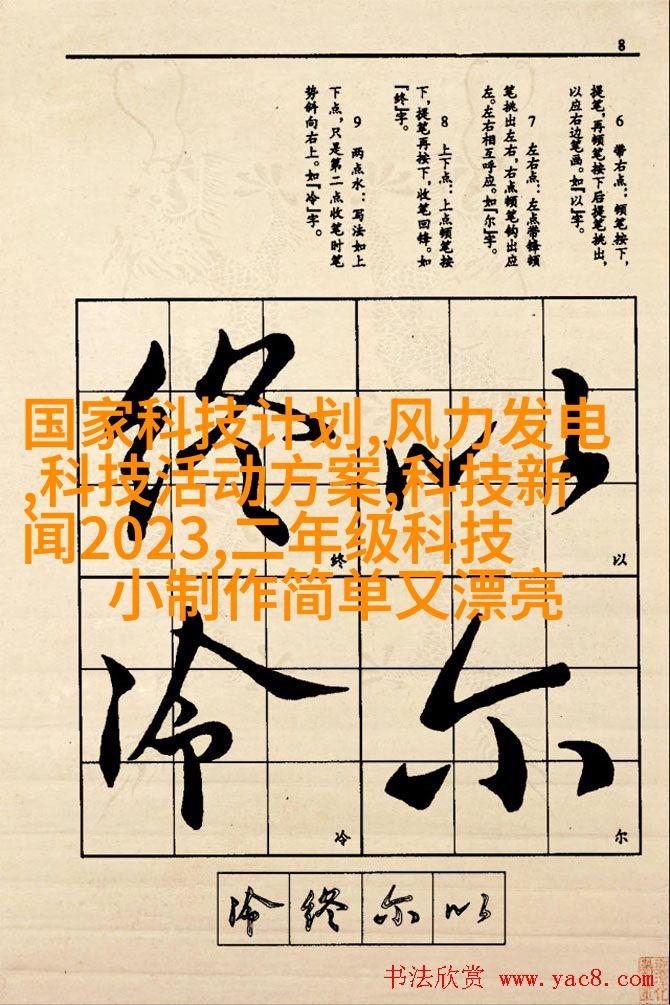 8
6 带右点:顿笔按下,
提笔,再顿笔按下后提笔挑出,
以应右边笔画。如『以』字。
7 左右点:左点带锋顿
笔挑出左右,右点顿笔钩出应
左。左右相互呼应。如『尔』字。
8 上下点:上点顿笔按
下,提笔再按下,收笔回锋。如
『终』字。
9 两点水:写法如上
下点,只是第二点收笔时笔
势斜向右上。如『冷』字。
终 以
国家科技计划,风力发电
,科技活动方案,科技新
闻2023,二年级科技
小制作简单又漂亮
终 以
冷 尔
冷 尔
冷 终 尔 以
书法欣赏 www.yac8.com